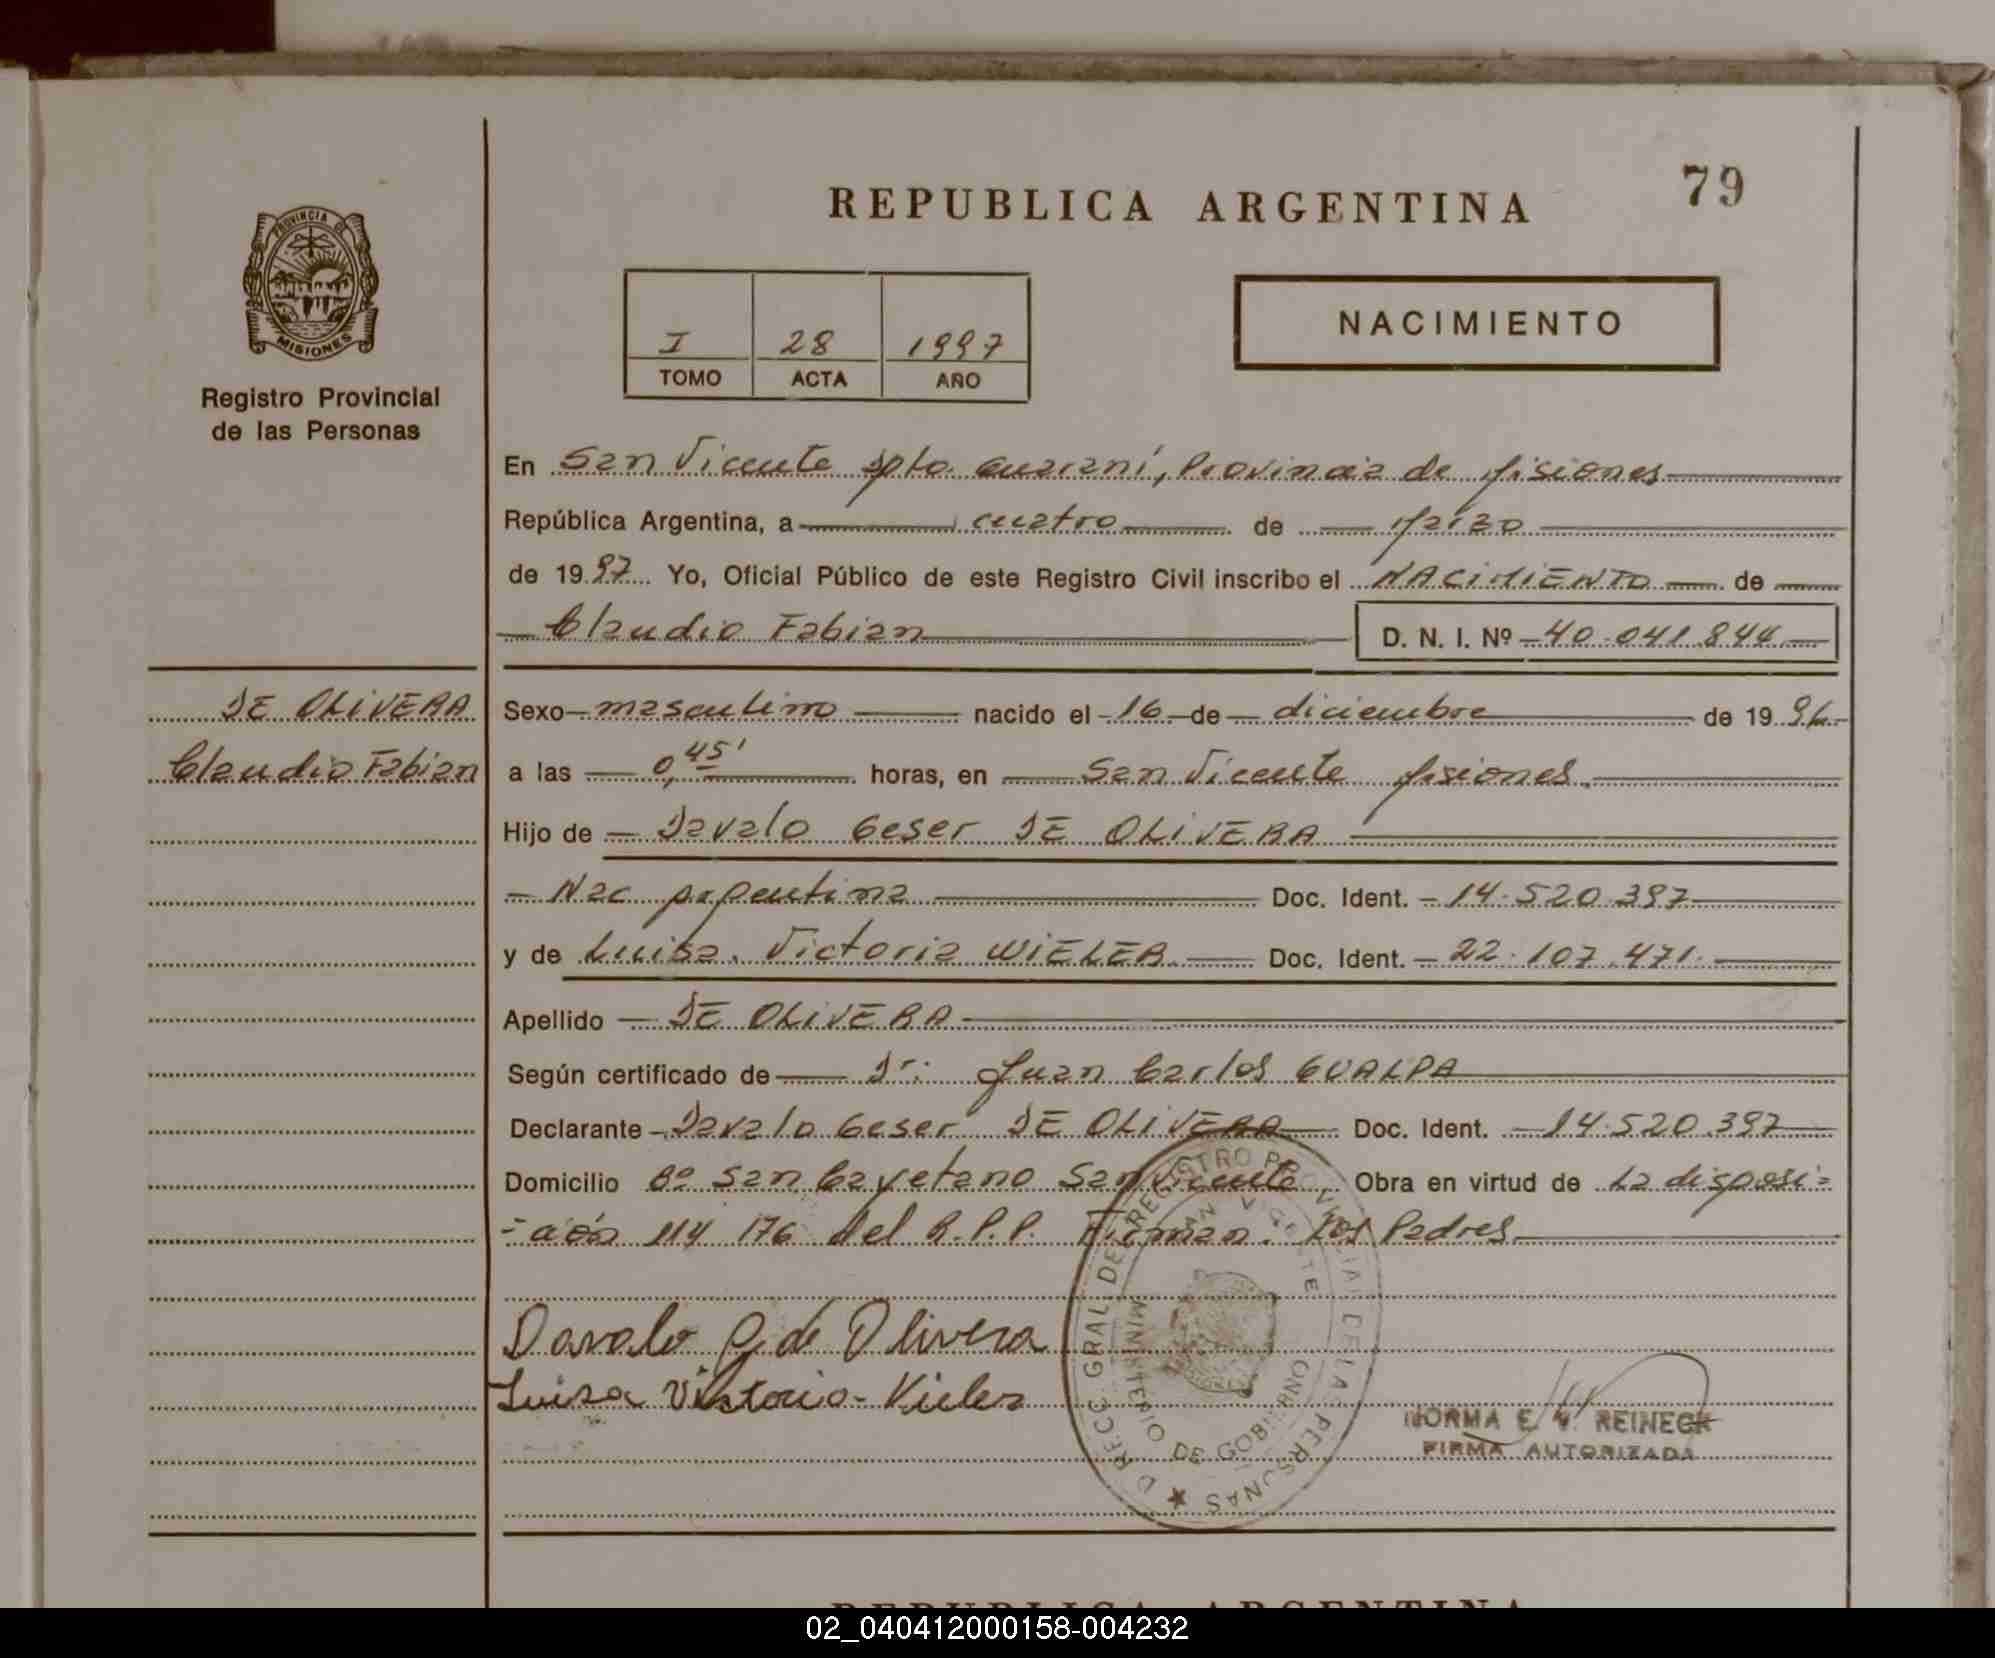 79
REPUBLICA ARGENTINA
PROVINCIA DE
MISIONES
Registro Provincial
de las Personas
I 28 1997
TOMO ACTA AÑO
NACIMIENTO
En San Vicente Dpto. Guaraní, Provincia de Misiones
República Argentina, a cuatro de Marzo
de 1997 Yo, Oficial Público de este Registro Civil inscribo el NACIMIENTO de
Claudio Fabian D. N. I. Nº 40.041.844
DE OLIVERA
Claudio Fabian
Sexo masculino nacido el 16 de diciembre de 1996
a las 0,45' horas, en San Vicente Misiones
Hijo de Davalo Geser DE OLIVERA
Nac argentina Doc. Ident. 14.520.397
y de Luisa Victoria WIELER Doc. Ident. 22.107.471
Apellido DE OLIVERA
Según certificado de Dr: Juan Carlos GUALPA
Declarante Davalo Geser DE OLIVERA Doc. Ident. 14.520.397
Domicilio Bº San Cayetano San Vicente Obra en virtud de La disposi=
=ción 114 176 del R.P.P. Firman: Los Padres
Davalo G de Olivera
Luisa Victoria Vieler
DIRECC GRAL DE REGISTRO PROVINCIAL DE LAS PERSONAS
SAN VICENTE
MINISTERIO DE GOBIERNO
NORMA E. REINECK
FIRMA AUTORIZADA
REPUBLICA ARGENTINA
02_040412000158-004232